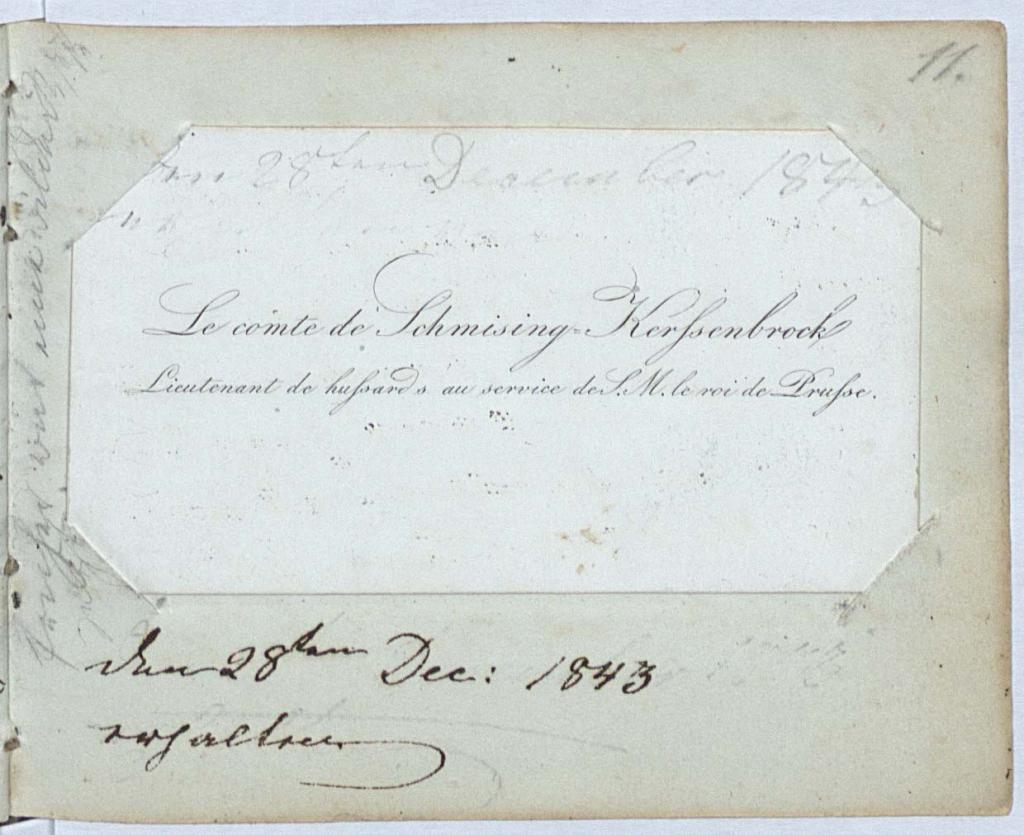 11.
den 28ten December 1843
Le comte de Schmising-Kerssenbrock
Lieutenant de hussards au service de S. M. le roi de Prusse.
den 28ten Dec: 1843
erhalten